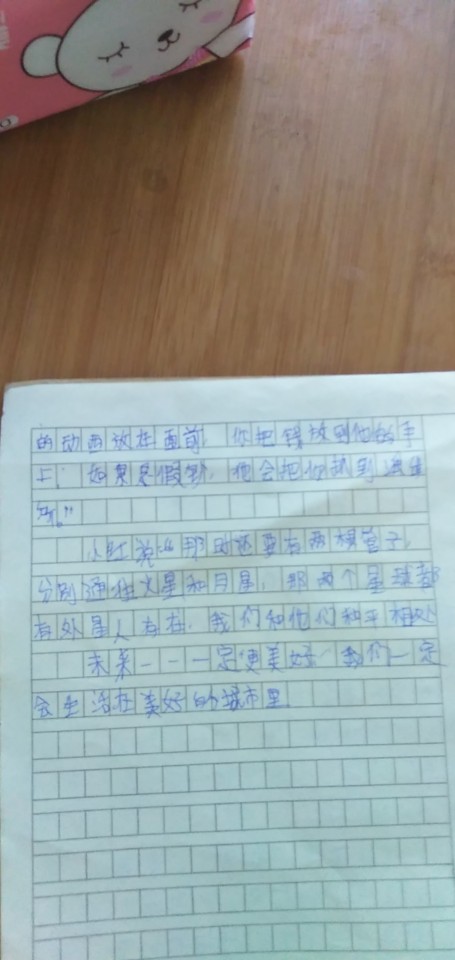 的动西放在面前，你把钱放到他的手
上，如果是假钞，他会把你抓到派出
所。”
小红说：“那时还要有两根管子，
分别通往火星和月星，那两个星球都
有外星人存在，我们和他们和平相处
未来一一一定更美好，我们一定
会生活在美好的城市里